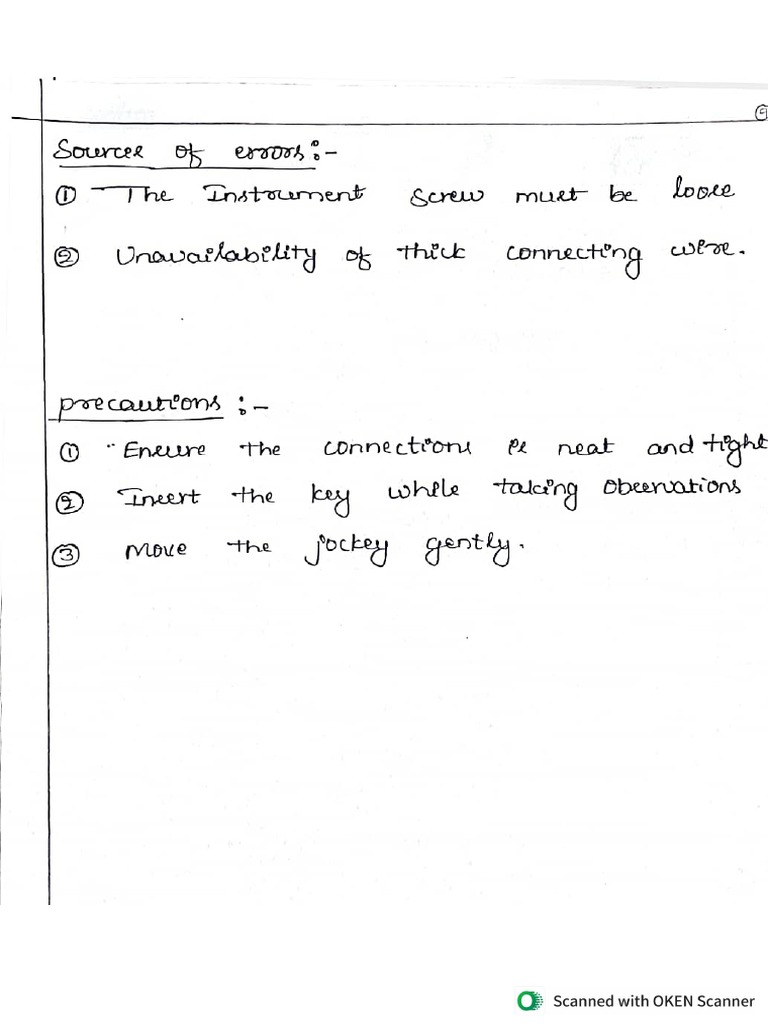 Sources of errors:-
① The Instrument screw must be loose
② Unavailability of thick connecting wire.
precautions :-
① Ensure the connections is neat and tight
② Insert the key while taking observations
③ Move the jockey gently.
Scanned with OKEN Scanner